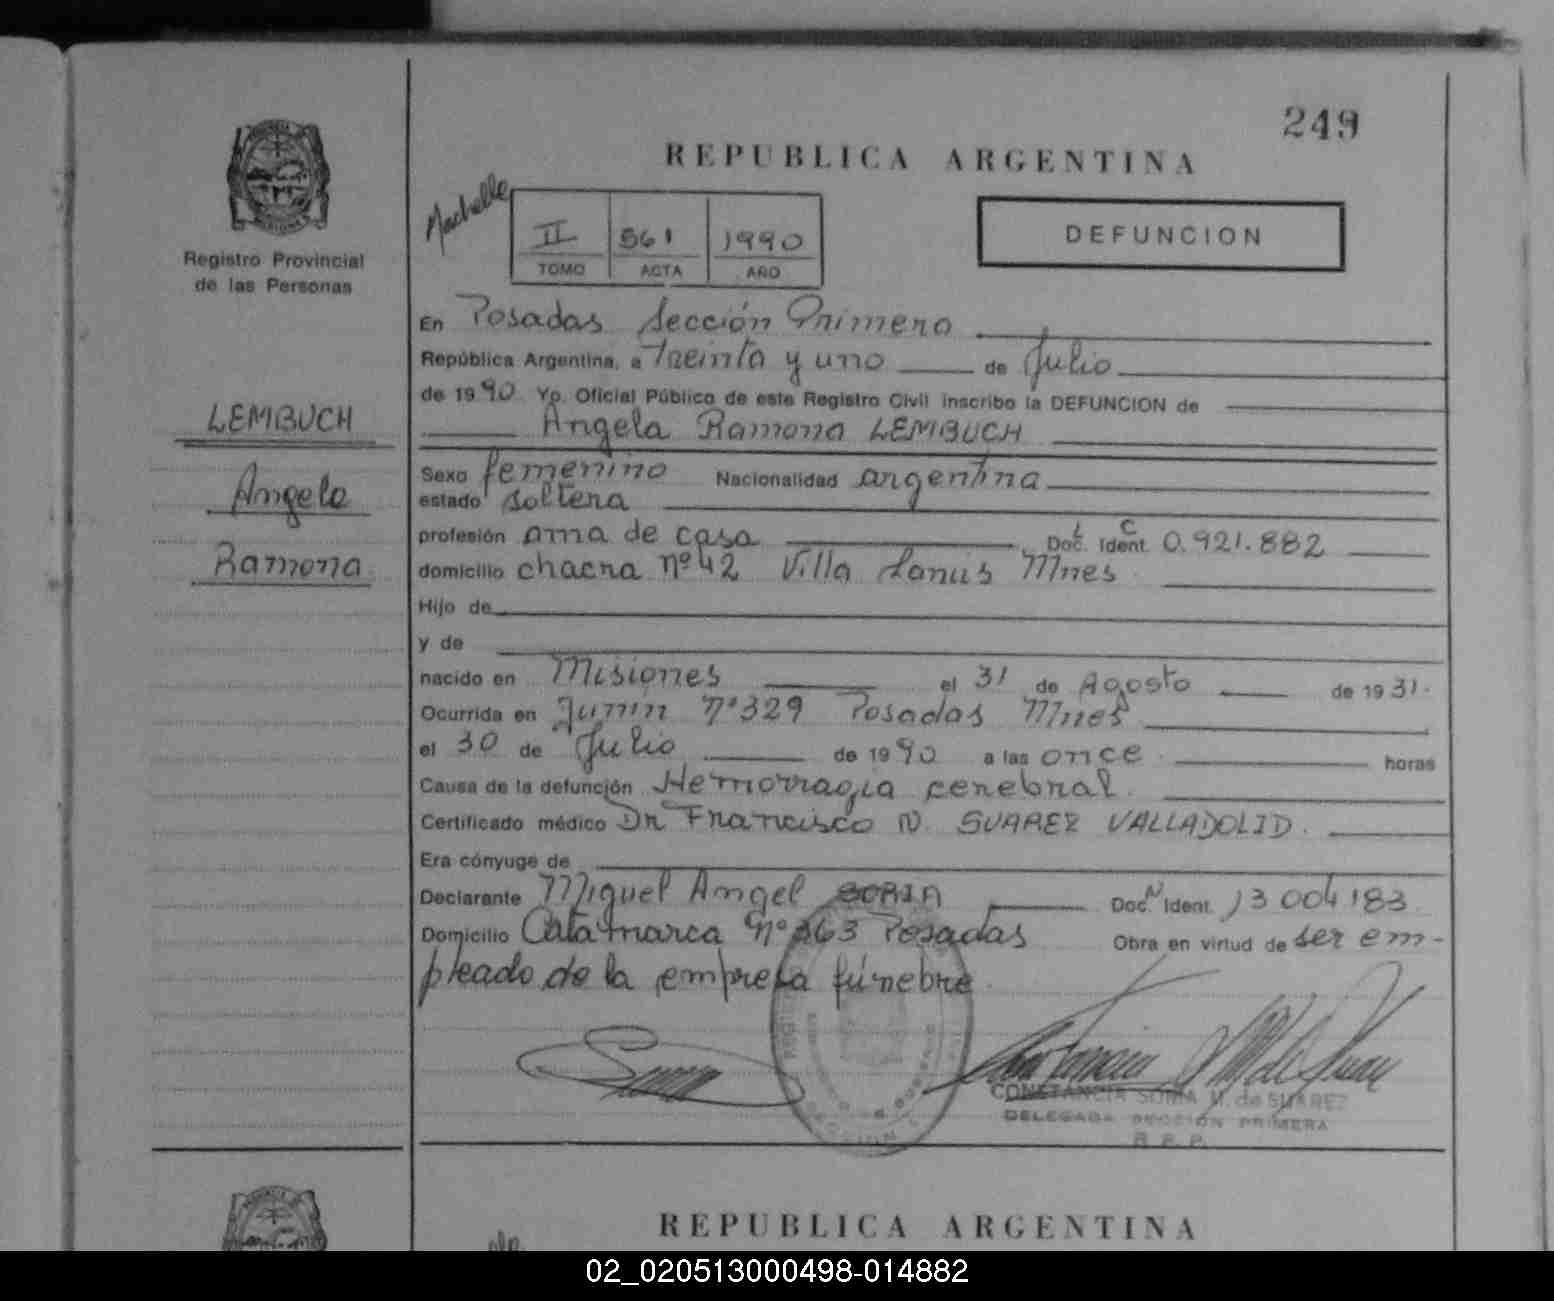 249
REPUBLICA ARGENTINA
II 561 1990
TOMO ACTA AÑO
DEFUNCION
Registro Provincial
de las Personas
LEMBUCH
Angela
Ramona
En Posadas Sección Primera
República Argentina, a Treinta y uno de Julio
de 1990 Yo, Oficial Público de este Registro Civil inscribo la DEFUNCION de
Angela Ramona LEMBUCH
Sexo femenino Nacionalidad argentina
estado soltera
profesión ama de casa Doc. Ident. L C 0.921.882
domicilio chacra nº 42 Villa Lanus Mnes
Hijo de
y de
nacido en Misiones el 31 de Agosto de 1931.
Ocurrida en Junin nº 329 Posadas Mnes
el 30 de Julio de 1990 a las once horas
Causa de la defunción Hemorragia cerebral.
Certificado médico Dr Francisco N. SUAREZ VALLADOLID.
Era cónyuge de
Declarante Miguel Angel SORIA Doc. N Ident. 13 004 183
Domicilio Catamarca nº Posadas Obra en virtud de ser em-
pleado de la empresa fúnebre
CONSTANCIA SONIA M. de SUAREZ
DELEGADA SECCION PRIMERA
R. P. P.
REPUBLICA ARGENTINA
02_020513000498-014882